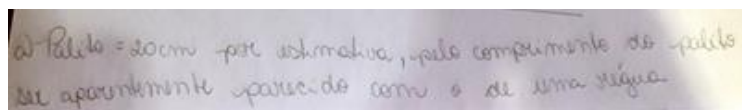 a)-Palito = 20cm por estimativa, pelo comprimento do palito
ser aparentemente parecido com o de uma régua